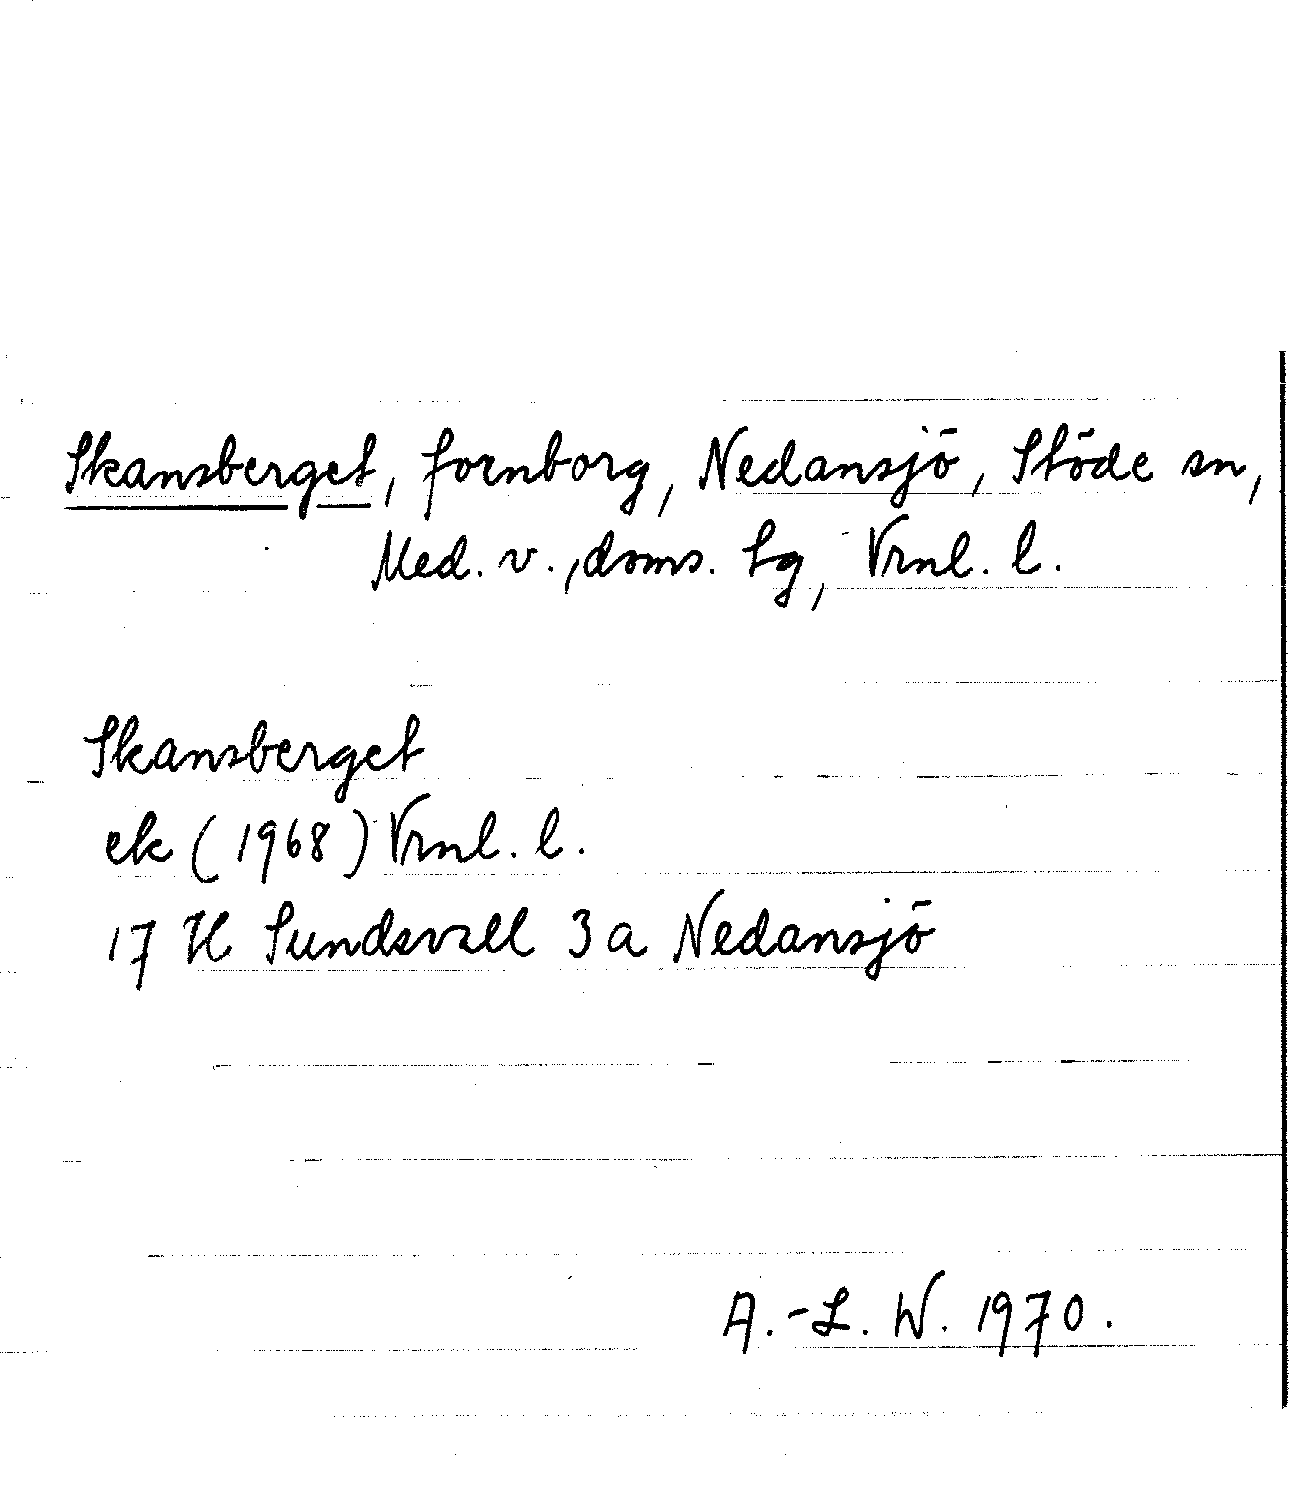 Skansberget, fornborg, Nedansjö, Stöde sn,
Med. v., doms. lg, Vrnl. l.
Skansberget
ek (1968) Vrnl. l.
17 H Sundsvall 3 a Nedansjö
A.-L. W. 1970.